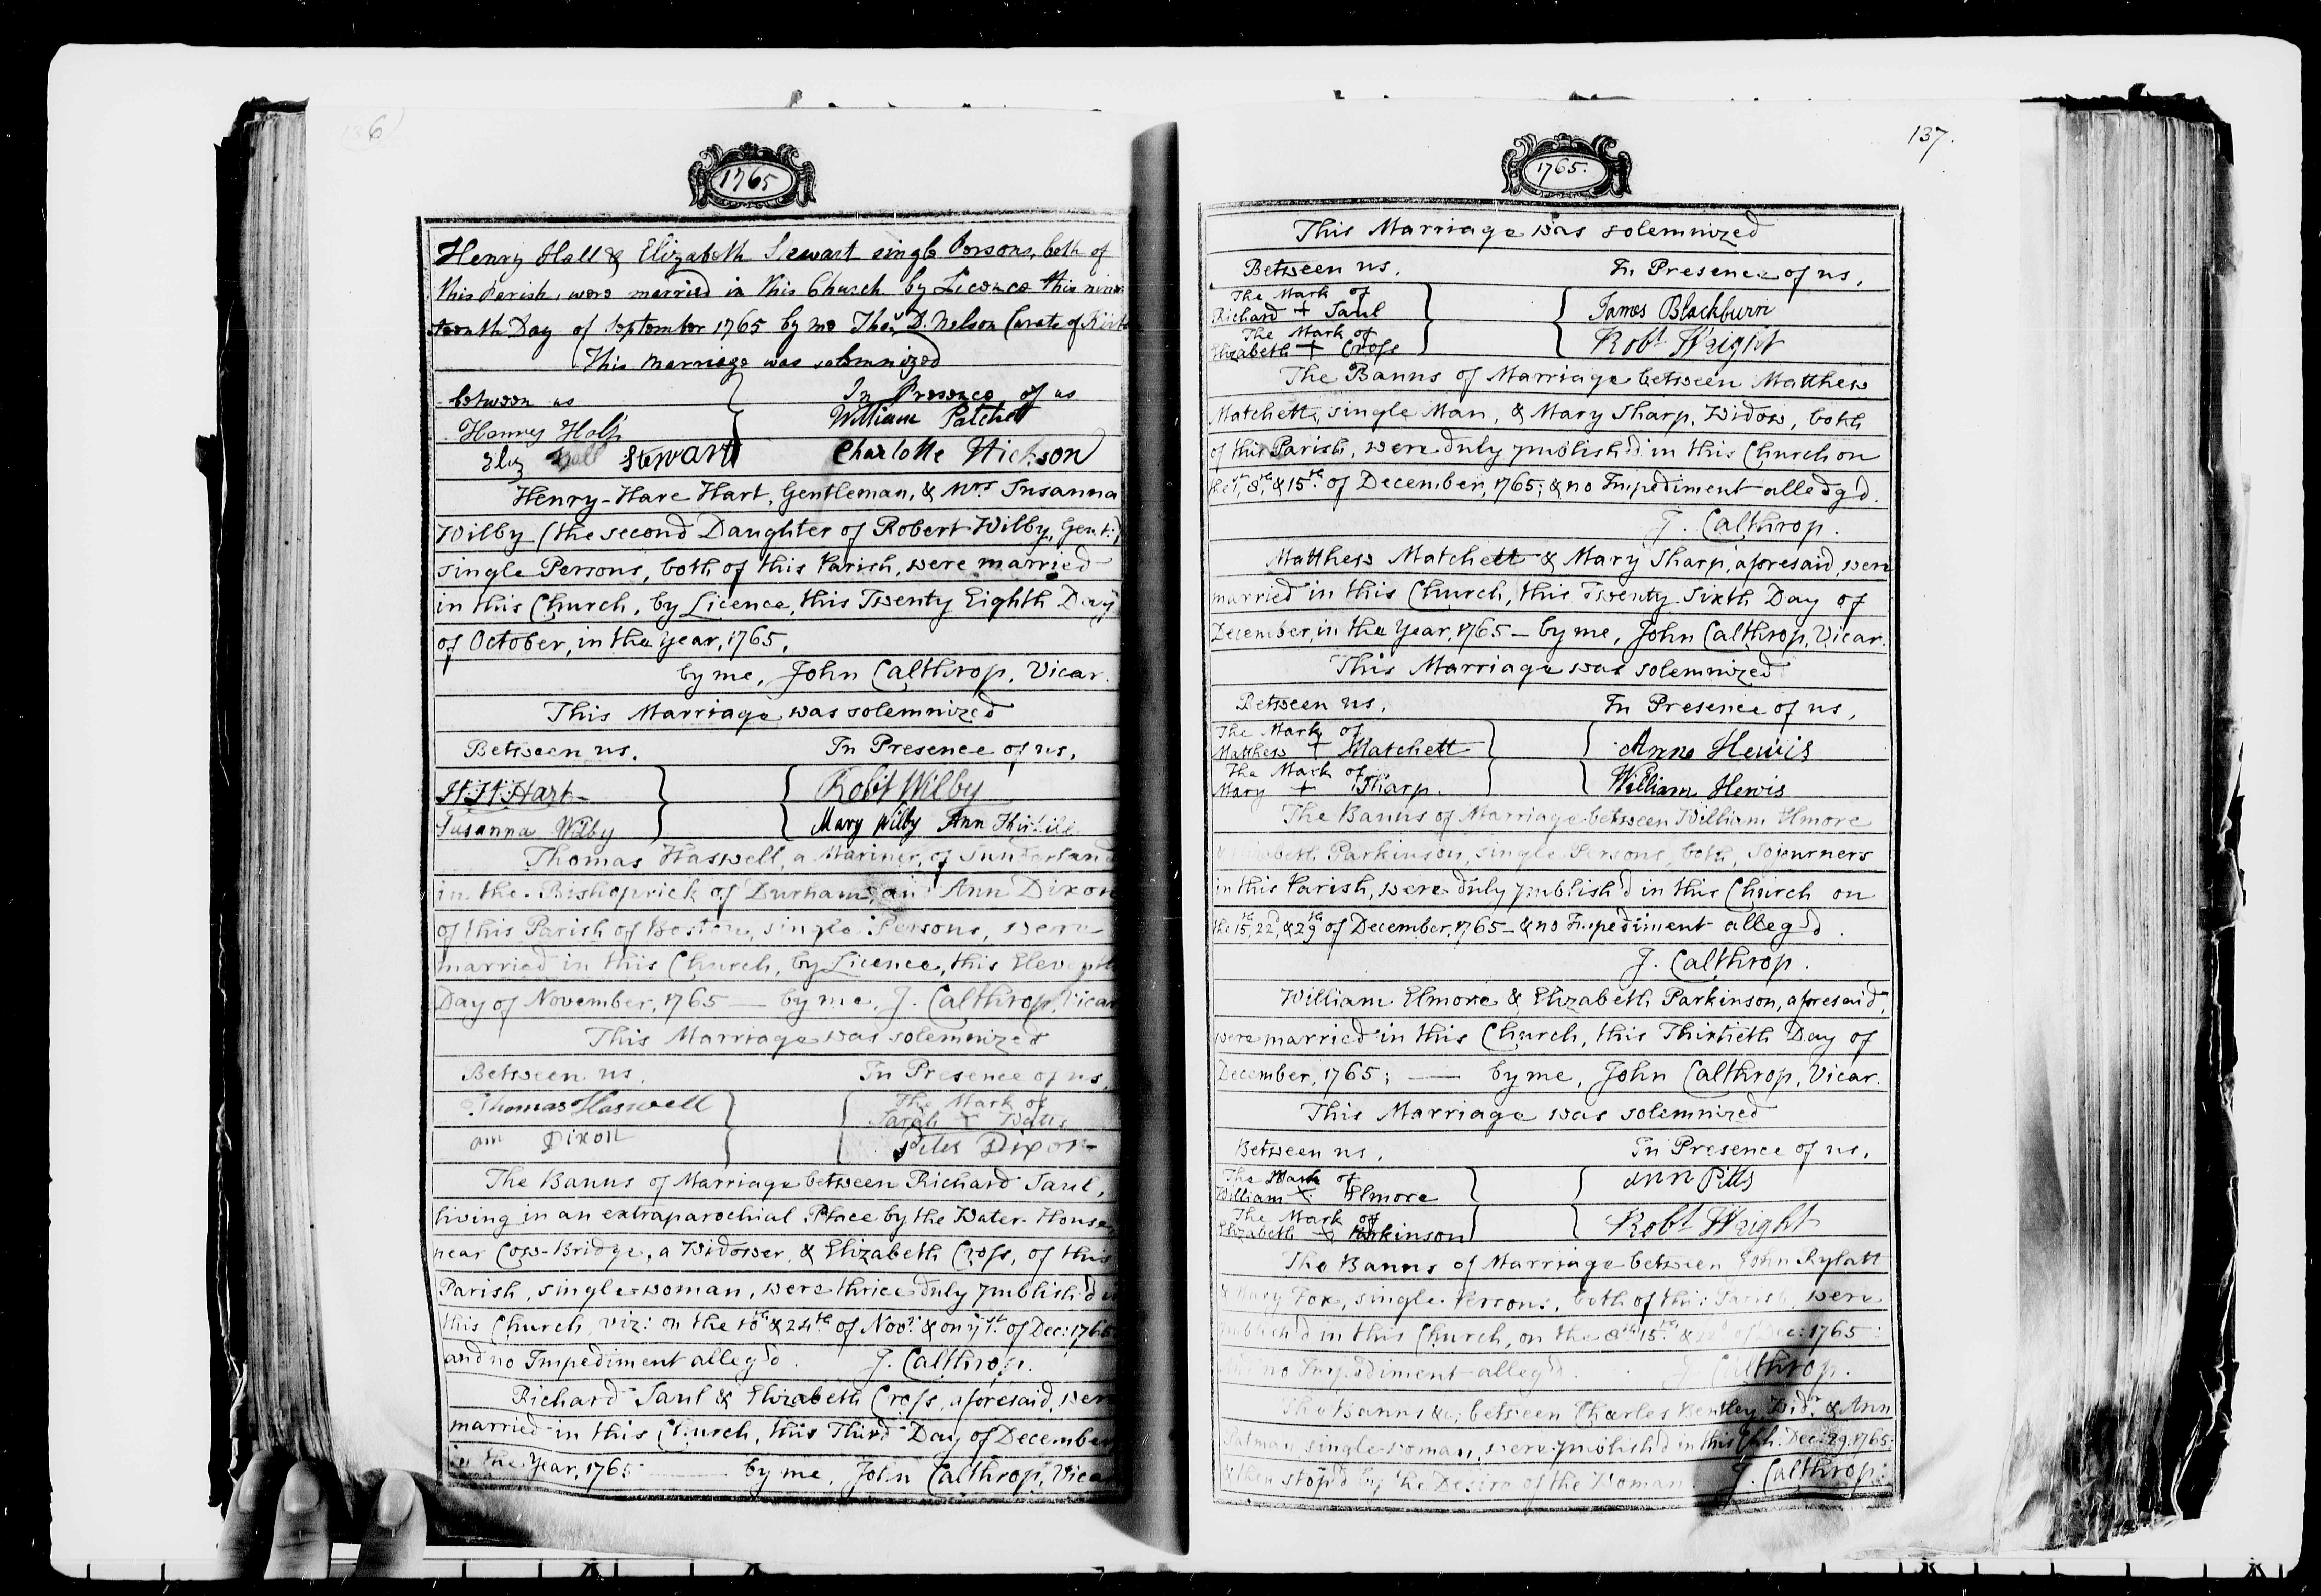 136
1765
Henry Hall & Elizabeth Stewart single Persons, both of
this Parish, were married in this Church by Licence this nine
teenth Day of September 1765 by me Thos. D. Nelson Curate of
This Marriage was solemnized
between us In Presence of us
Henry Hall William Patchet
Eliz Hall Stewart Charlotte Hickson
Henry-Hare Hart, Gentleman, & Mrs Susanna
Wilby (the second Daughter of Robert Wilby, Gent.)
single Persons, both of this Parish, were married
in this Church, by Licence, this Twenty Eighth Day
of October, in the Year, 1765,
by me, John Calthrop, Vicar.
This Marriage was solemnized
Between us. In Presence of us,
H: H: Hart Robt Wilby
Susanna Wilby Mary Wilby Ann
Thomas Haswell, a Mariner, of Sunderland
in the Bishoprick of Durham, and Ann Dixon
of this Parish of Boston, single Persons, were
married in this Church, by Licence, this Eleventh
Day of November, 1765 — by me, J. Calthrop, Vicar
This Marriage was solemnized
Between us, In Presence of us,
Thomas Haswell The Mark of
Sarah X
ann Dixon Peter Dixon
The Banns of Marriage between Richard Saul,
living in an extraparochial Place by the Water-House,
near Cow-Bridge, a Widower, & Elizabeth Cross, of this
Parish, single woman, were thrice duly publish'd in
this Church, viz: on the 10th & 24th of Nov.r & on ye 1st of Dec: 1765
and no Impediment alleg'd. J. Calthrop.
Richard Saul & Elizabeth Cross, aforesaid, were
married in this Church, this Third Day of December
in the Year, 1765 — by me, John Calthrop, Vicar
137.
1765.
This Marriage was solemnized
Between us, In Presence of us,
The Mark of
Richard + Saul James Blackburn
The Mark of
Elizabeth + Cross Robt Wright
The Banns of Marriage between Matthew
Matchett, single Man, & Mary Sharp, Widow, both
of this Parish, were duly publish'd in this Church on
the 1st, 8th, & 15th of December, 1765; & no Impediment alledg'd.
J. Calthrop.
Matthew Matchett & Mary Sharp, aforesaid, were
married in this Church, this Twenty Sixth Day of
December, in the Year, 1765 — by me, John Calthrop, Vicar.
This Marriage was solemnized
Between us, In Presence of us,
The Mark of
Matthew + Matchett Anne Hewis
The Mark of
Mary + Sharp. William Hewis
The Banns of Marriage between William Elmore
& Elizabeth Parkinson, single Persons, both, Sojourners
in this Parish, were duly publish'd in this Church on
the 15th, 22d, & 29th of December, 1765 — & no Impediment alleg'd.
J. Calthrop.
William Elmore & Elizabeth Parkinson, aforesaid,
were married in this Church, this Thirtieth Day of
December, 1765; — by me, John Calthrop, Vicar.
This Marriage was solemnized
Between us, In Presence of us,
The Mark of
William X Elmore Ann Pitts
The Mark of
Elizabeth X Parkinson Robt Wright
The Banns of Marriage between John Rylatt
& Mary Fox, single Persons, both of this Parish, were
publish'd in this Church, on the 8th, 15th, & 22d of Dec: 1765:
and no Impediment alleg'd. J. Calthrop.
The Banns &c; between Charles Bentley, Widr. & Ann
single woman, were publish'd in this Chh: Dec: 29. 1765:
& then stop'd by the Desire of the Woman J. Calthrop.